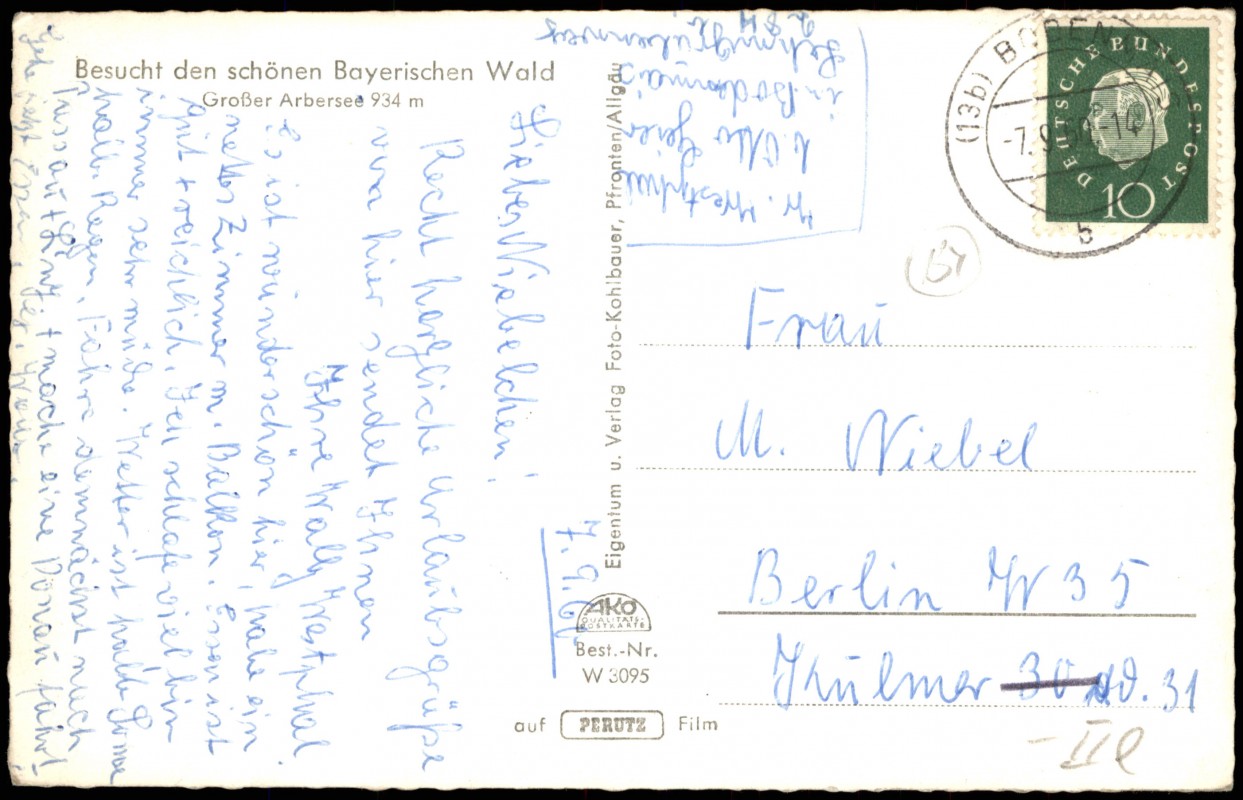 Besucht den schönen Bayerischen Wald
Großer Arbersee 934 m
7. 9. 60
Liebes Wiebelchen!
Recht herzliche Urlaubsgrüße
von hier sendet Ihnen
Ihre Wally Westphal
Es ist wunderschön hier, habe ein
nettes Zimmer m. Balkon. Essen ist
gut + reichlich. Ich schlafe viel bin
immer sehr müde. Wetter ist halb Sonne
halb Regen. Fahre demnächst nach
Passau + Linz + mache eine Donaufahrt
Gehe jetzt Essen
W. Westphal
b. Otto Geier
in Bodenmais
Eigentum u. Verlag Foto-Kohlbauer, Pfronten/Allgäu
AKO
QUALITÄTS-
POSTKARTE
Best.-Nr.
W 3095
auf PERUTZ Film
DEUTSCHE BUNDESPOST
10
(13b) BODENMAIS
-7.9.60-14
b
Frau
M. Wiebel
Berlin W 35
Kulmer 30 31